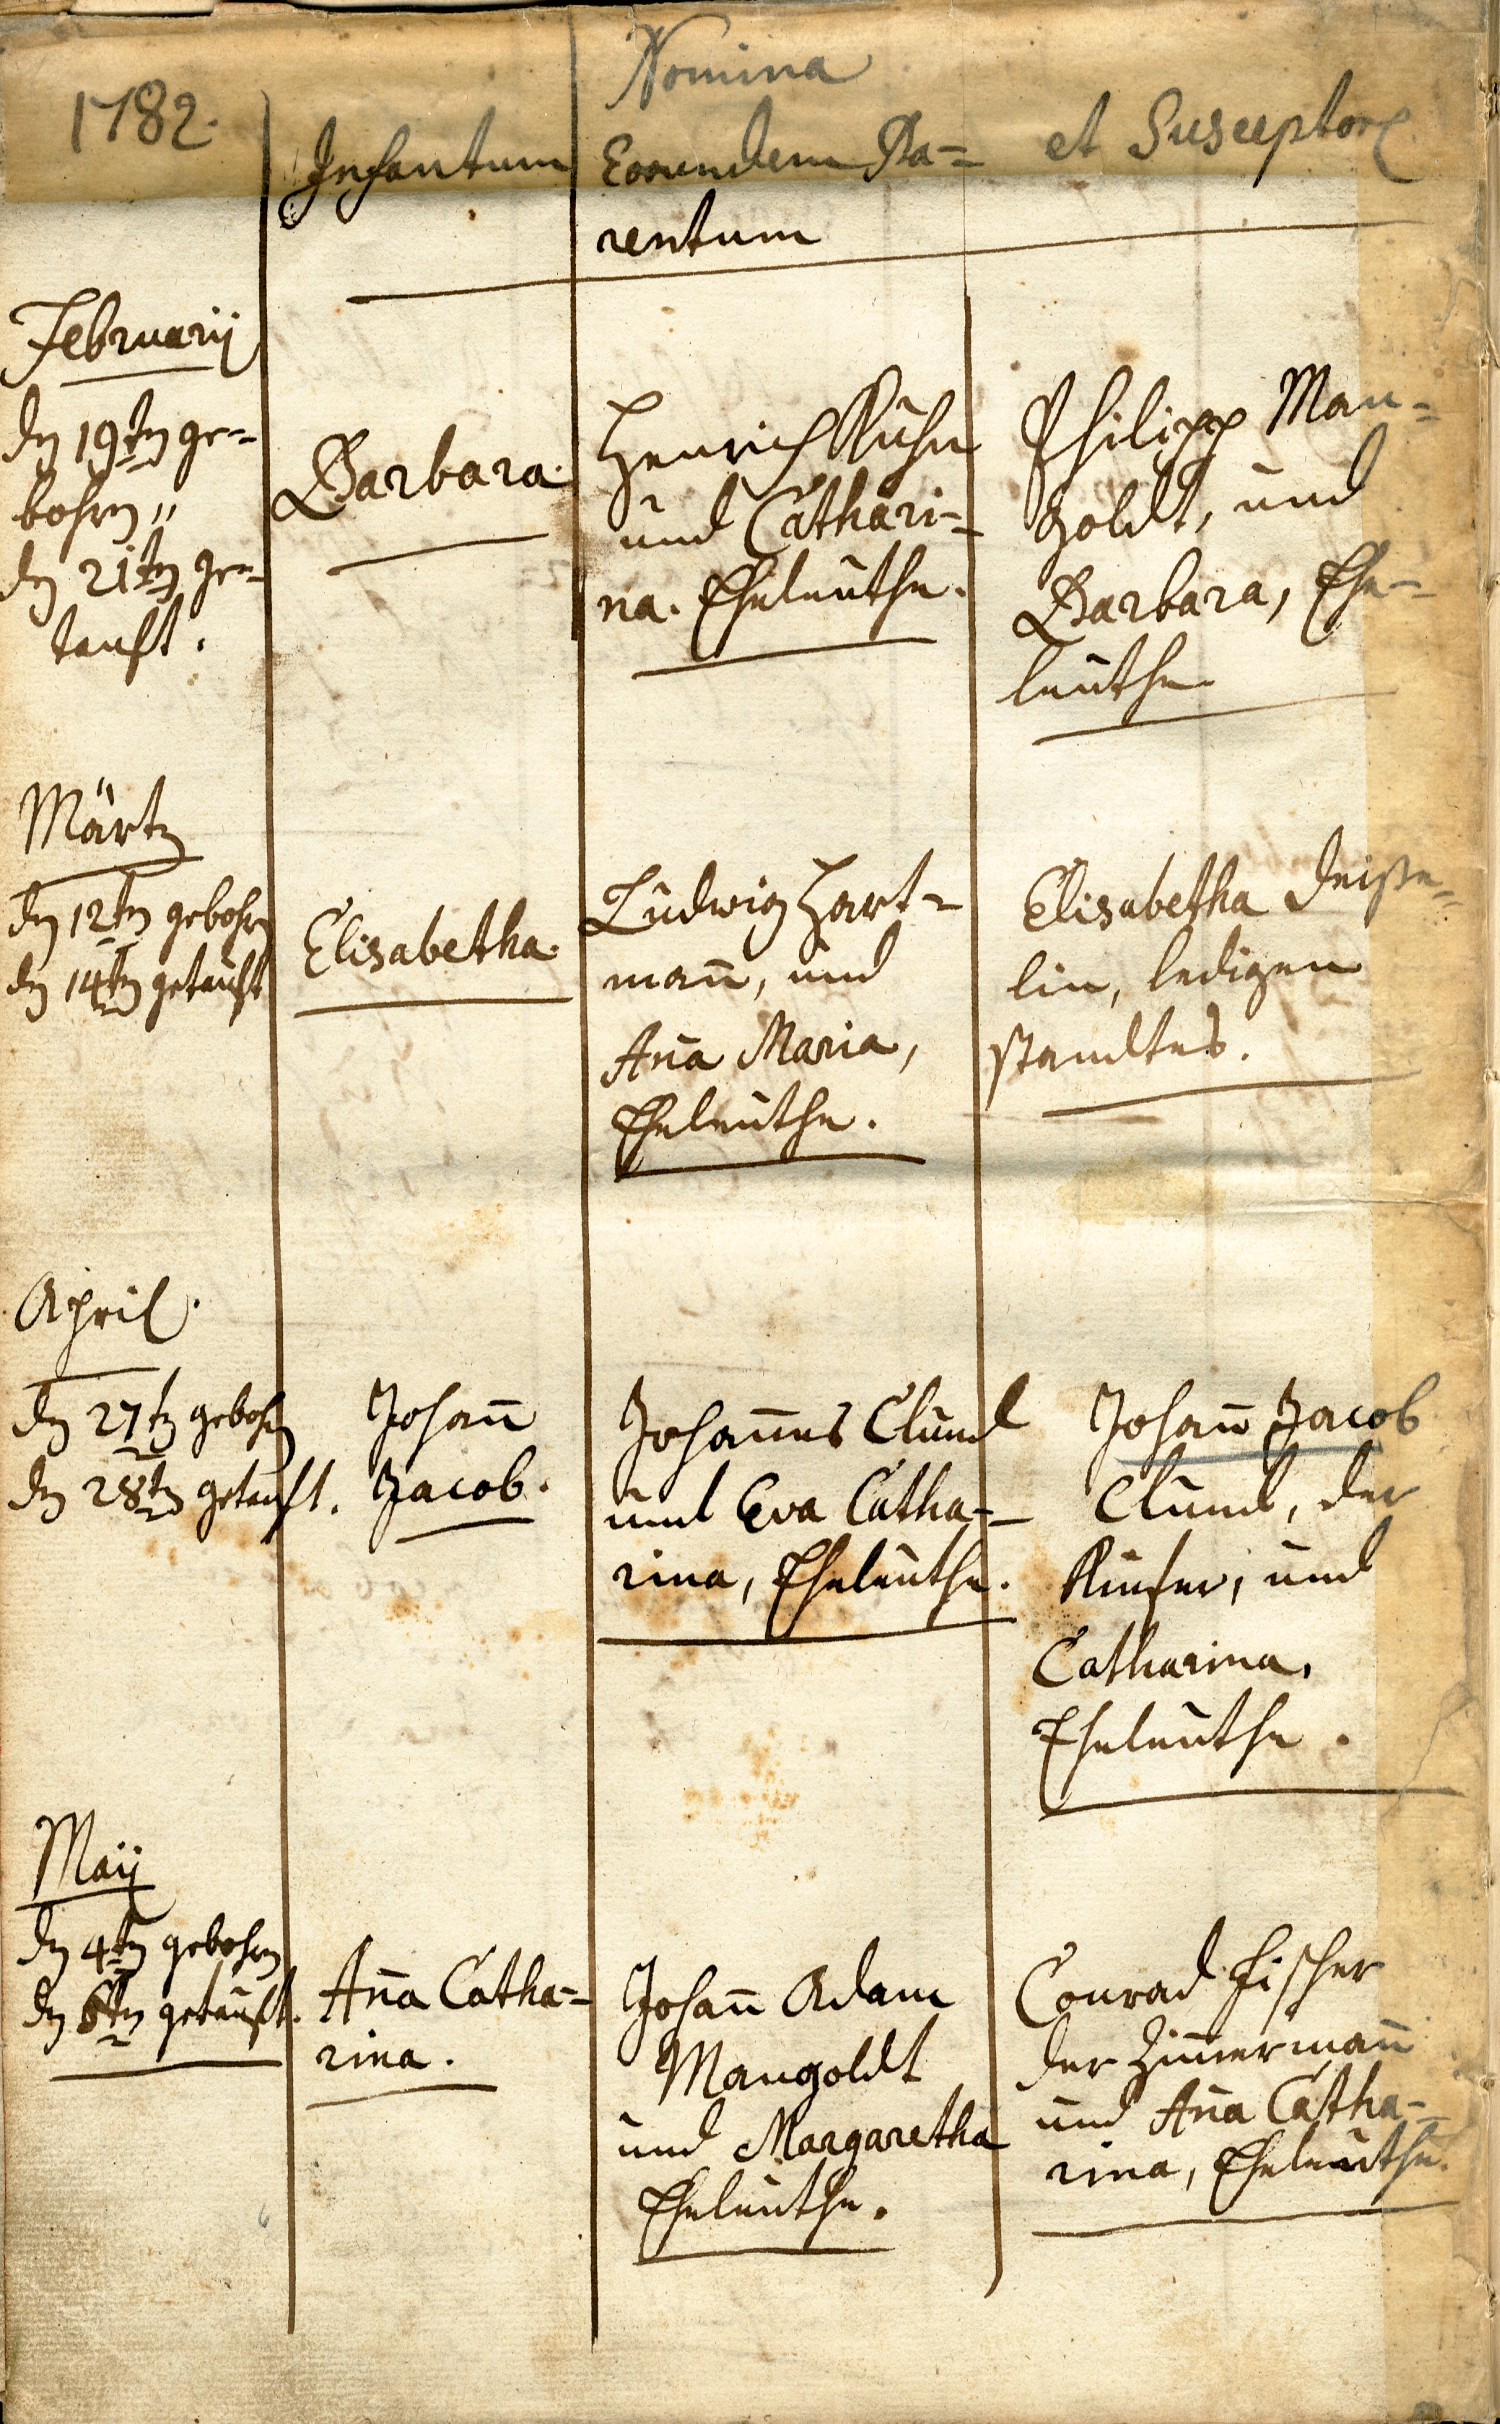 Nomina
1782.
Infantum
Eorundem Pa=
rentum
et Susceptores
Februarij
den 19ten ge=
bohren,,
den 21ten ge=
tauft.
Barbara.
Henrich Kuhn
und Cathari=
na. Eheleuthe.
Philipp Man=
goldt, und
Barbara, Ehe=
leuthe
Märtz
den 12ten gebohren
den 14ten getauft
Elisabetha.
Ludwig Hart=
mañ, und
Aña Maria,
Eheleuthe.
Elisabetha
lin, ledigen
standtes.
April.
den 27ten gebohren
den 28ten getauft.
Johañ
Jacob.
Johañes Clund
und Eva Catha=
rina, Eheleuthe.
Johañ Jacob
Clund, der
und
Catharina,
Eheleuthe.
Maij
den 4ten gebohren
den 6ten getauft.
Aña Catha=
rina.
Johañ Adam
Mangoldt
und Margaretha
Eheleuthe.
Conrad Fischer
der Zim̃ermañ
und Aña Catha=
rina, Eheleuthe.